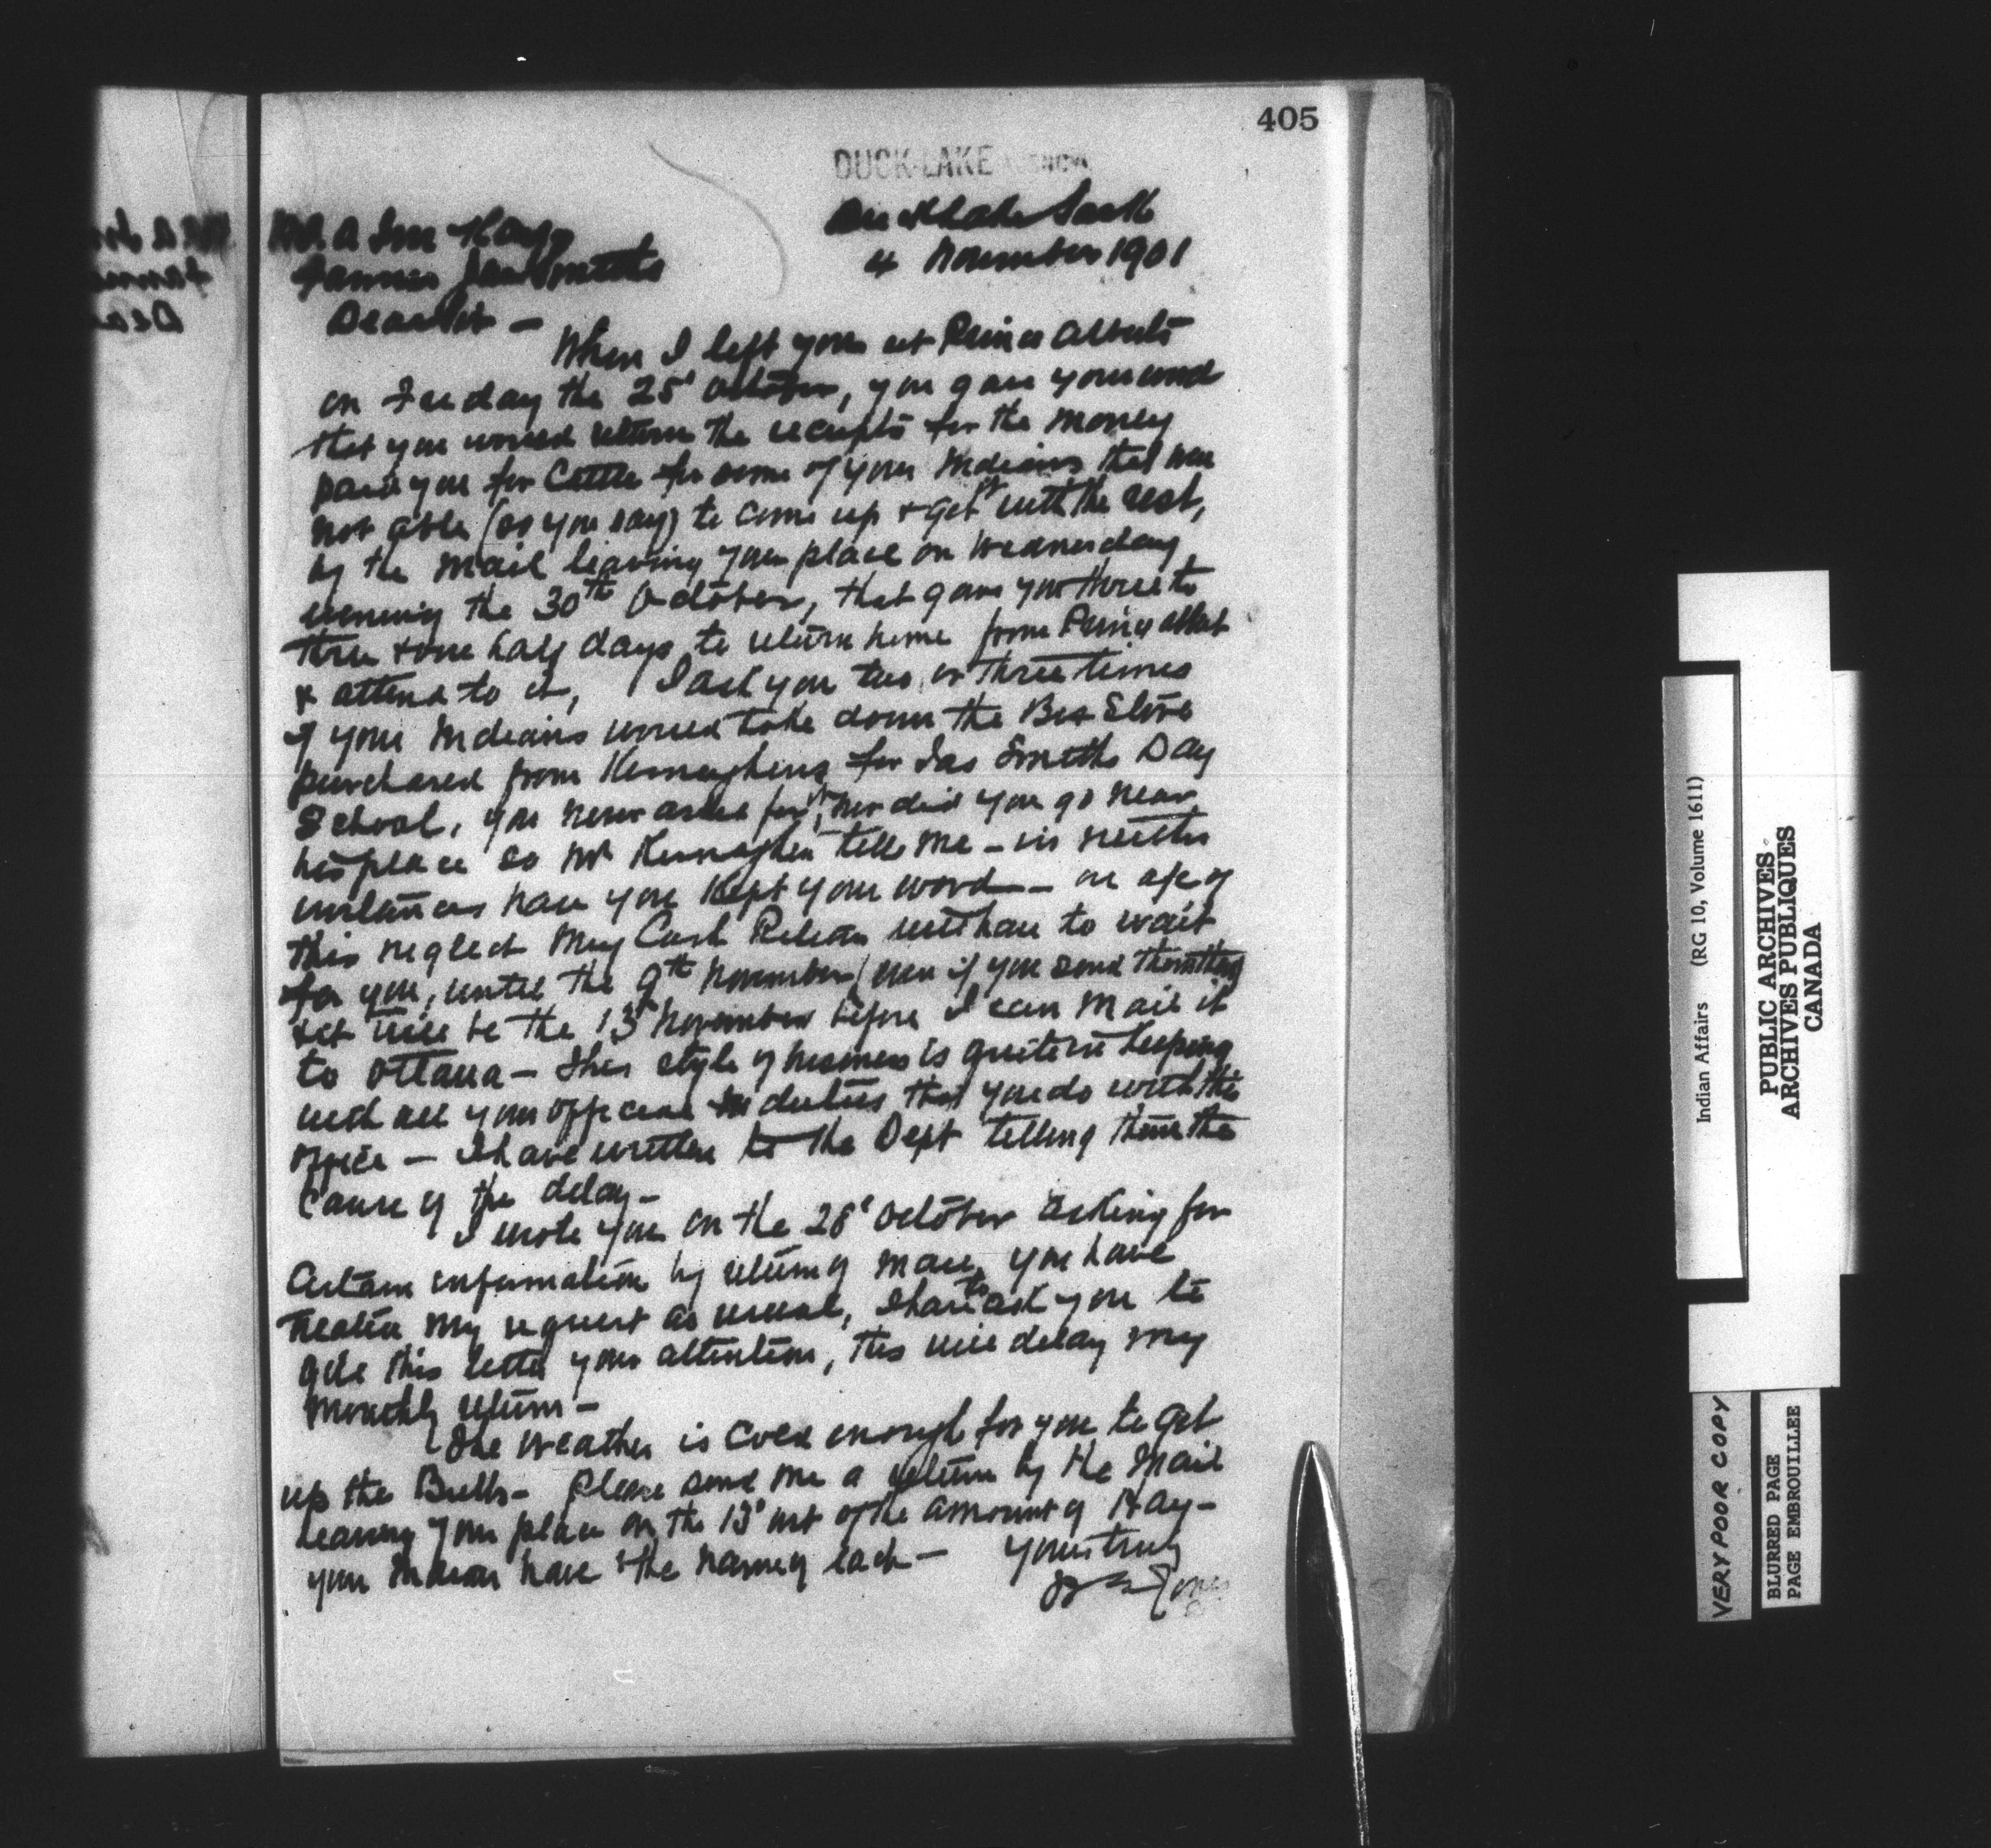 405
DUCK LAKE AGENCY
Duck Lake Sask
4 November 1901
Farmer Jas Smiths
Dear Sir –
When I left you at Prince Albert
on Friday the 25' October, you gave your word
that you would return the receipts for the money
paid you for Cattle for some of your Indians that were
not able (as you say) to come up & get it with the rest,
by the mail leaving your place on Wednesday
evening the 30th October, that gave you three to
three & one half days to return home from Prince Albert
& attend to it, I ask you two or three times
if your Indians would take down the Box Stove
purchased from Kernaghens for Jas Smiths Day
School, you never asked for it, nor did you go near
his place so Mr Kernaghen tells me – in neither
instances have you kept your word – on a/c of
this neglect my Cash Return will have to wait
for you, until the 9th November (even if you send them then
it will be the 13' November before I can mail it
to Ottawa – This style of business is quite in keeping
with all your official duties that you do with this
office – I have written to the Dept telling them the
Cause of the delay –
I wrote you on the 28' October asking for
Certain information by return of mail, you have
treated my request as usual, I have to ask you to
give this letter your attention, this will delay my
Monthly return –
The weather is cold enough for you to get
up the Bulls – Please send me a return by the Mail
leaving your place on the 13' inst of the amount of Hay –
your Indians have & the name of each – Yours truly
Jones
Indian Affairs (RG 10, Volume 1611)
PUBLIC ARCHIVES
ARCHIVES PUBLIQUES
CANADA
VERY POOR COPY
BLURRED PAGE
PAGE EMBROUILLEE